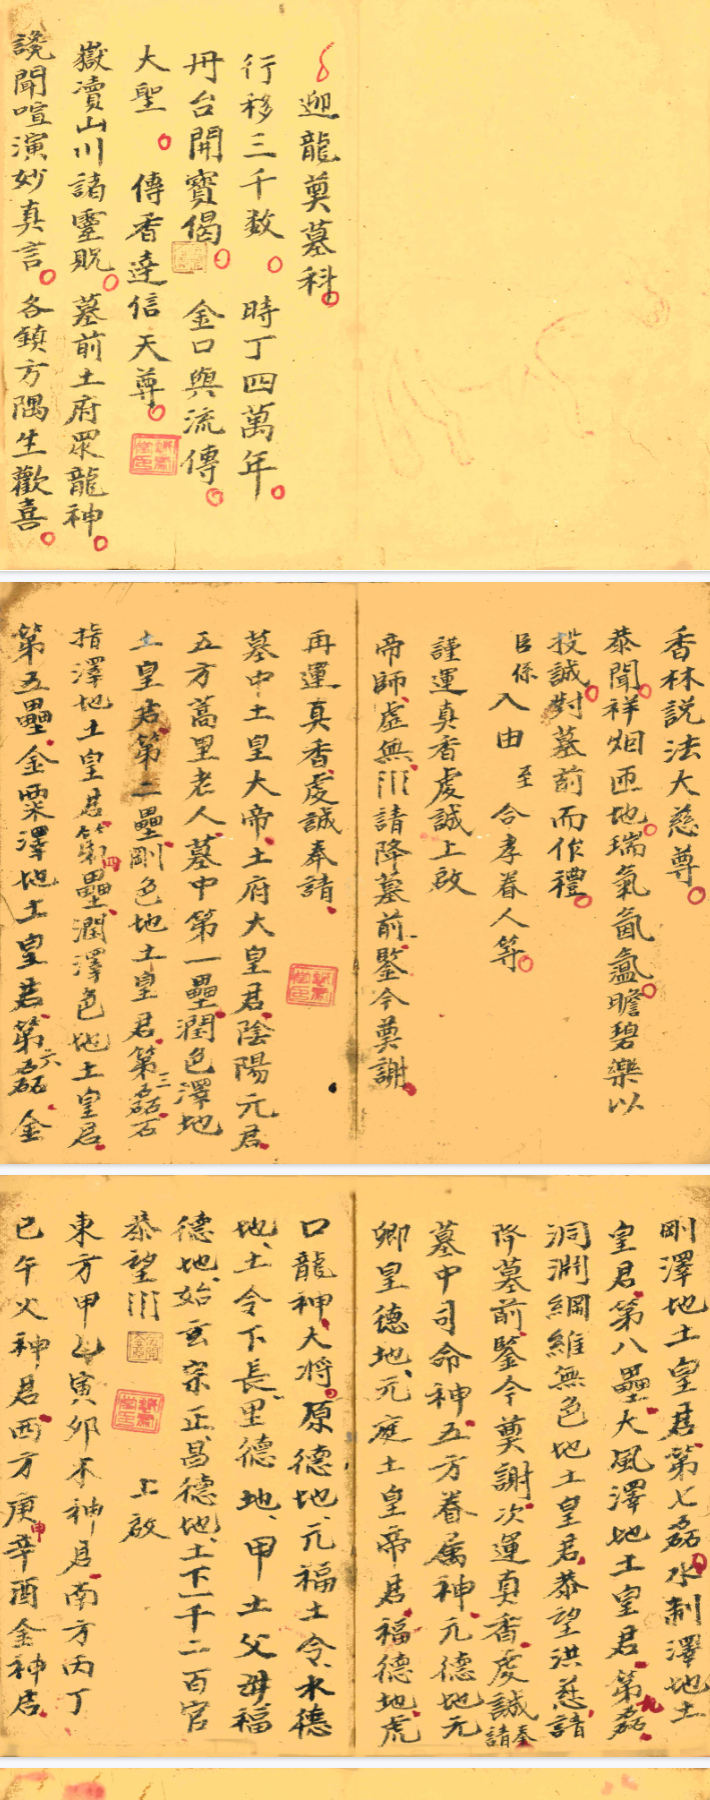 迎龍奠墓科
行移三千数 時丁四萬年
丹台開寳偈 金口與流傳
大聖 傳香達信天尊
嶽瀆山川諸靈貺 墓前土府眾龍神
讒聞喧演妙真言 各鎮方隅生歡喜
香林説法大慈尊
恭聞祥烟匝地瑞氣氤氳瞻碧樂以
投誠對墓前而作禮
臣係 入由 至 合孝眷人等
謹運真香虔誠上啟
帝師虛無 請降墓前鑒今奠謝
再運真香虔誠奉請
墓中土皇大帝土府大皇君陰陽元君
五方蒿里老人墓中第一壘潤色澤地
土皇君第二壘剛色地土皇君第三磊石
指澤地土皇君第四壘潤澤色地土皇君
第五壘金粟澤地土皇君第六磊金
剛澤地土皇君第七磊水制澤地土
皇君第八壘大風澤地土皇君第九磊
洞渊綱維無色地土皇君恭望洪慈請
降墓前鑒今奠謝次運真香虔誠奉請
墓中司命神五方眷属神元德地元
卿皇德地元庭土皇帝君福德地虎
口龍神大將原德地元福土令水德
地土令下長里德地甲土父母福
德地始玄宗正昌德地土下一千二百官
恭望 上啟
東方甲乙寅卯木神君南方丙丁
巳午火神君西方庚申辛酉金神君